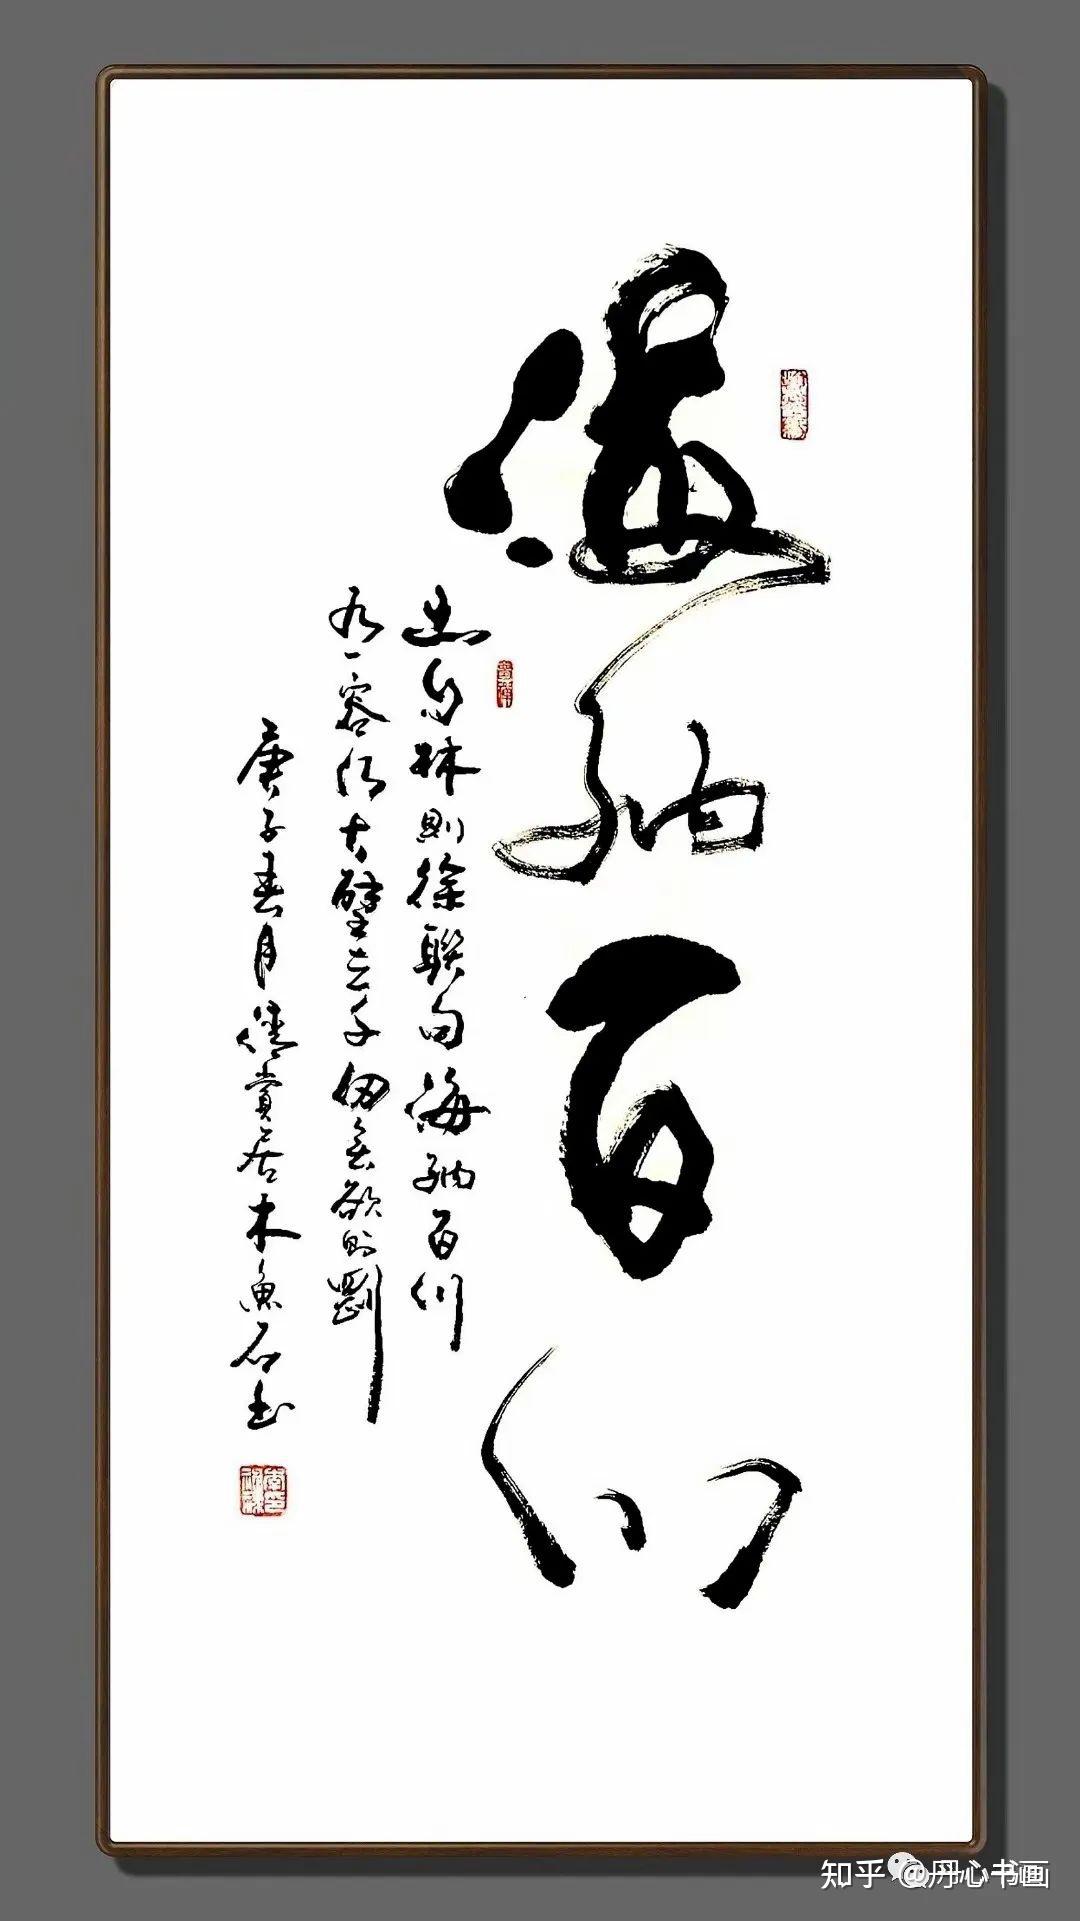 海纳百川
出自林则徐联句海纳百川
有容乃大壁立千仞无欲则刚
庚子春月 赏居木鱼石书
知乎 @丹心书画